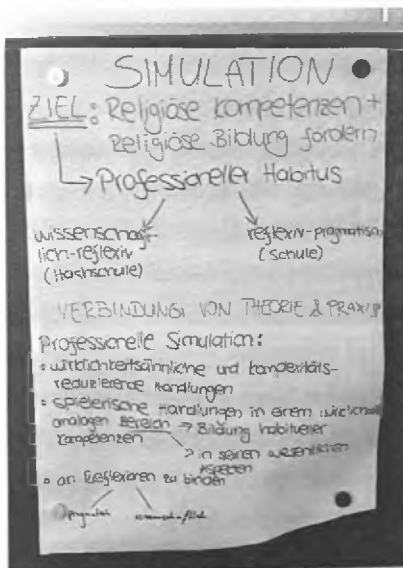 SIMULATION
ZIEL: Religiöse Kompetenzen +
Religiöse Bildung fördern
→ Professioneller Habitus
wissenschaft-
lich-reflexiv
(Hochschule)
reflexiv-pragmatisch
(Schule)
VERBINDUNG VON THEORIE & PRAXIS
Professionelle Simulation:
• wirklichkeitsähnliche und komplexitäts-
reduzierende Handlungen
• spielerische Handlungen in einem
analogen Bereich → Bildung habitueller
Kompetenzen
→ in seinen wesentlichen
Aspekten
• an Reflexionen zu binden